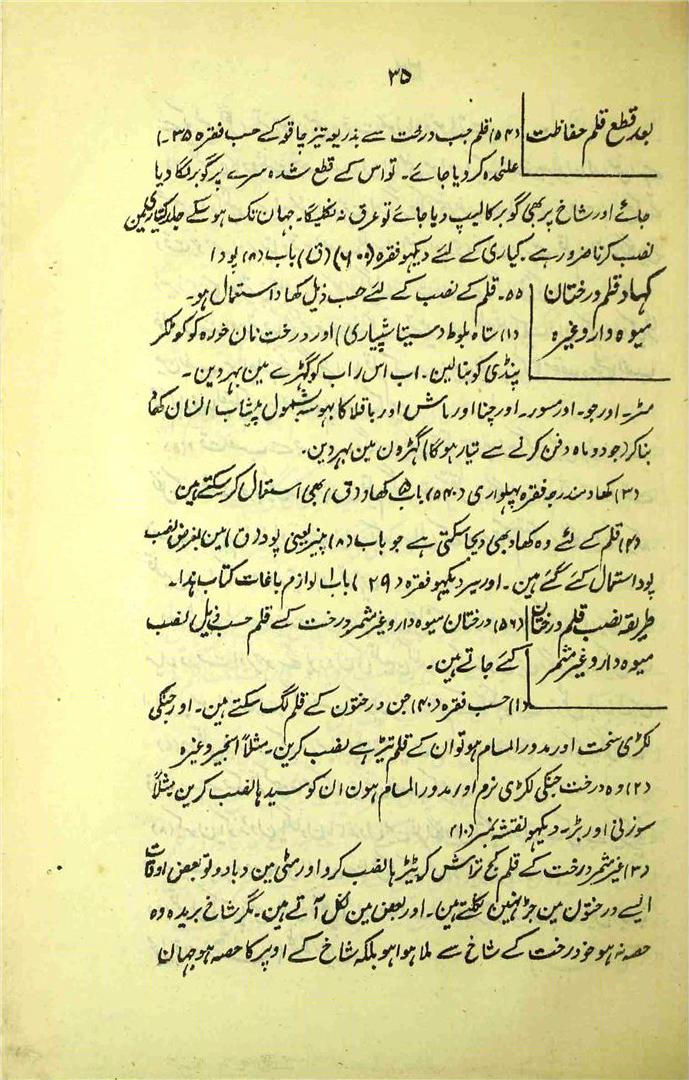 ۳۵
بعد قطع قلم حفاظت (۵۴) قلم جب درخت سے بذریعہ تیز چاقو کے حسب فقرہ ۳۵۔)
علٰحدہ کر دیا جائے۔ تو اس کے قطع شدہ سرے پر گوبر لگا دیا
جائے اور شاخ پر بھی گوبر کا لیپ دیا جائے تو عرق نہ نکلیگا۔ جہان تک ہو سکے جلد کیاری مین
نصب کرنا ضرور ہے۔ کیاری کے لئے دیکھو فقرہ (۶۰۰) (ق) باب (۸) پود ا
کھاد قلم درختان ۵۵۔ قلم کے نصب کے لئے حسب ذیل کھاد استعمال ہو۔
میوہ دار وغیرہ (۱) شاہ بلوط (سیتا سپیاری) اور درخت نان خورہ کو کوٹکر
پنڈی کو بنا لین۔ اب اس راب کو گہڑے مین بہر دین۔
مٹر۔ اور جو۔ اور مسور۔ اور چنا اور ماش اور باقلا کا بھوسہ بشمول پیشاب انسان کھاد
بنا کر (جو دو ماہ دفن کرنے سے تیار ہو گا) گہڑون مین بہر دین۔
(۳) کھاد مندرجہ فقرہ پہلواری (۵۴۰) باب ۵ کھاد (ق) بھی استعمال کر سکتے ہین
(۴) قلم کے لئے وہ کھاد بھی دیجا سکتی ہے جو باب (۸) پنیر یعنی پود (ق) مین بغرض نصب
پود استعمال کئے گئے ہین۔ اور نیز دیکھو فقرہ (۲۹) باب ا لوازم باغات کتاب ہذا۔
طریقہ نصب قلم درختان (۵۶) درختان میوہ دار و غیر مثمر درخت کے قلم حسب ذیل نصب
میوہ دار و غیر مثمر کئے جاتے ہین۔
(۱) حسب فقرہ (۴۰) جن درختون کے قلم لگ سکتے ہین۔ اور جنکی
لکڑی سخت اور مدور المسام ہو تو ان کے قلم تیڑہے نصب کرین۔ مثلاً انجیر وغیرہ
(۲) وہ درخت جنکی لکڑی نرم اور مدور المسام ہون ان کو سیدہا نصب کرین مثلاً
سوزنی اور بڑ۔ دیکھو نقشہ نمبر (۱۰)
(۳) غیر مثمر درخت کے قلم کج تراش کر ٹیڑہا نصب کرو اور مٹی مین دبا دو تو بعض اوقات
ایسے درختون مین جڑ نہین نکلتے ہین۔ اور بعض مین نکل آتے ہین۔ مگر شاخ بریدہ وہ
حصہ نہ ہو جو درخت کے شاخ سے ملا ہوا ہو بلکہ شاخ کے اوپر کا حصہ ہو جہان